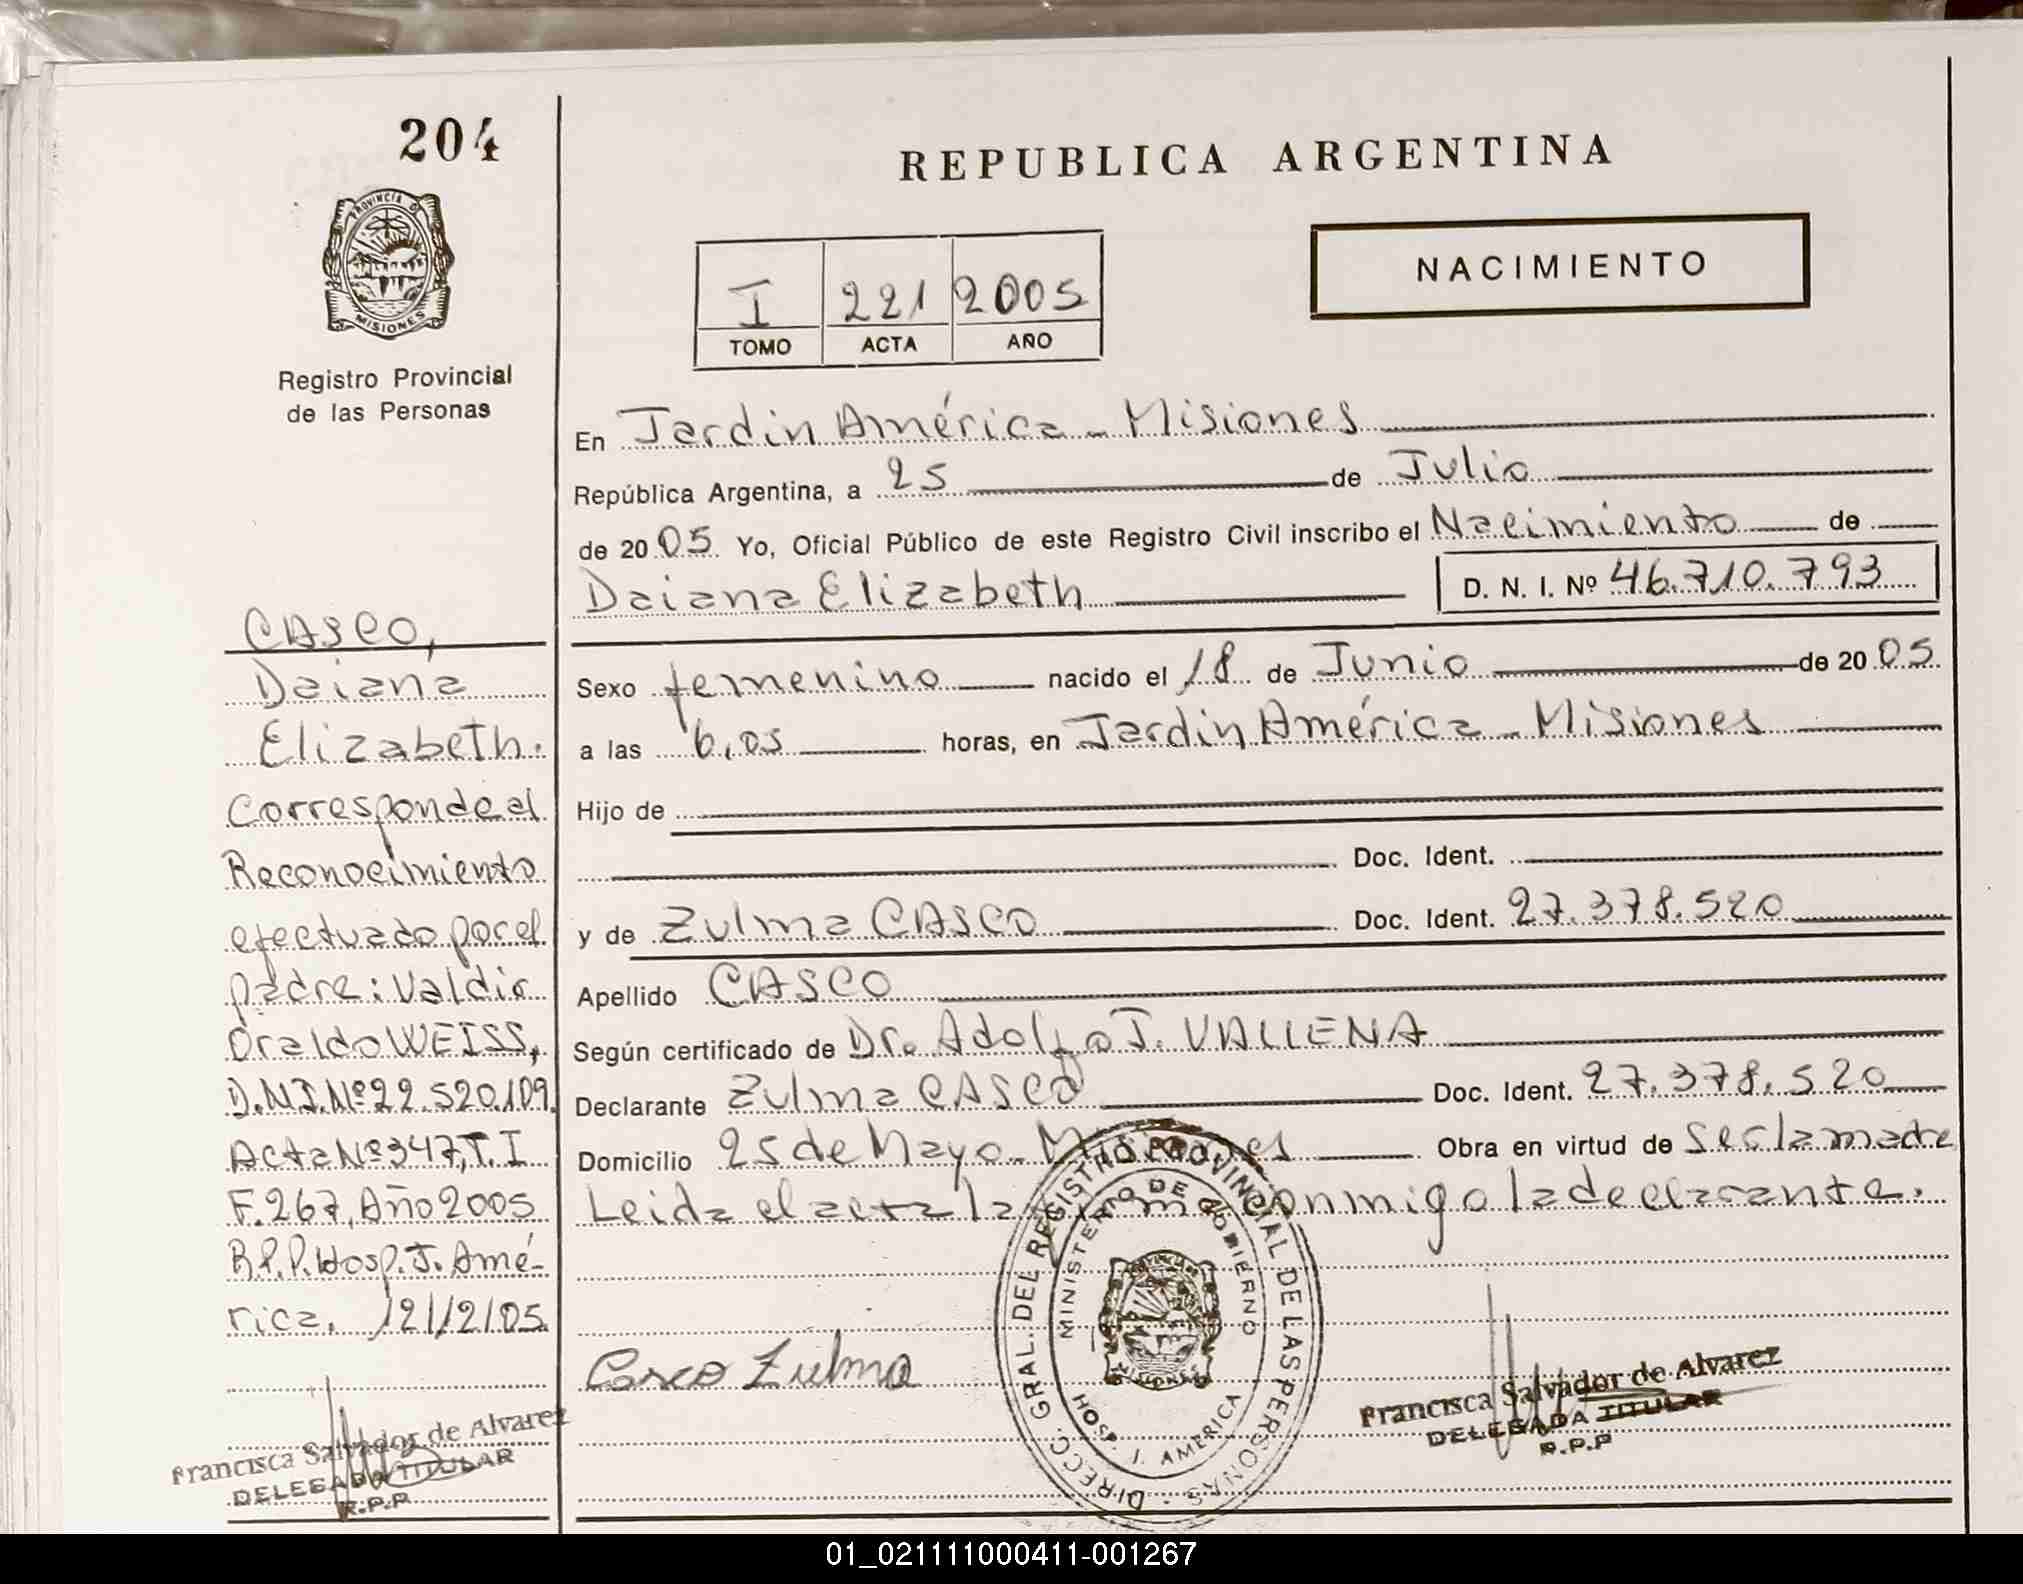 204
PROVINCIA D
MISIONES
Registro Provincial
de las Personas
CASCO,
Daiana
Elizabeth.
Corresponde al
Reconocimiento
efectuado por el
padre: Valdir
Oraldo WEISS,
D.N.I.Nº 22.520.109.
Acta Nº 347, T. I
F. 267, Año 2005
R.P.P. Hosp. J. Amé-
rica, 12/12/05.
Francisca Salvador de Alvarez
DELEGADA TITULAR
R.P.P
REPUBLICA ARGENTINA
I 221 2005
TOMO ACTA AÑO
NACIMIENTO
En Jardin América - Misiones
República Argentina, a 25 de Julio
de 2005 Yo, Oficial Público de este Registro Civil inscribo el Nacimiento de
Daiana Elizabeth D. N. I. Nº 46.710.793
Sexo femenino nacido el 18 de Junio de 2005
a las 6,05 horas, en Jardin América - Misiones
Hijo de
Doc. Ident.
y de Zulma CASCO Doc. Ident. 27.378.520
Apellido CASCO
Según certificado de Dr. Adolfo J. VALLENA
Declarante Zulma CASCO Doc. Ident. 27.378.520
Domicilio 25 de Mayo - Misiones Obra en virtud de Ser la madre
Leida el acta la firma conmigo la declarante.
Casco Zulma
DIRECC. GRAL. DEL REGISTRO PROVINCIAL DE LAS PERSONAS
MINISTERIO DE GOBIERNO
HOSP. J. AMERICA
Francisca Salvador de Alvarez
DELEGADA TITULAR
R.P.P
01_021111000411-001267